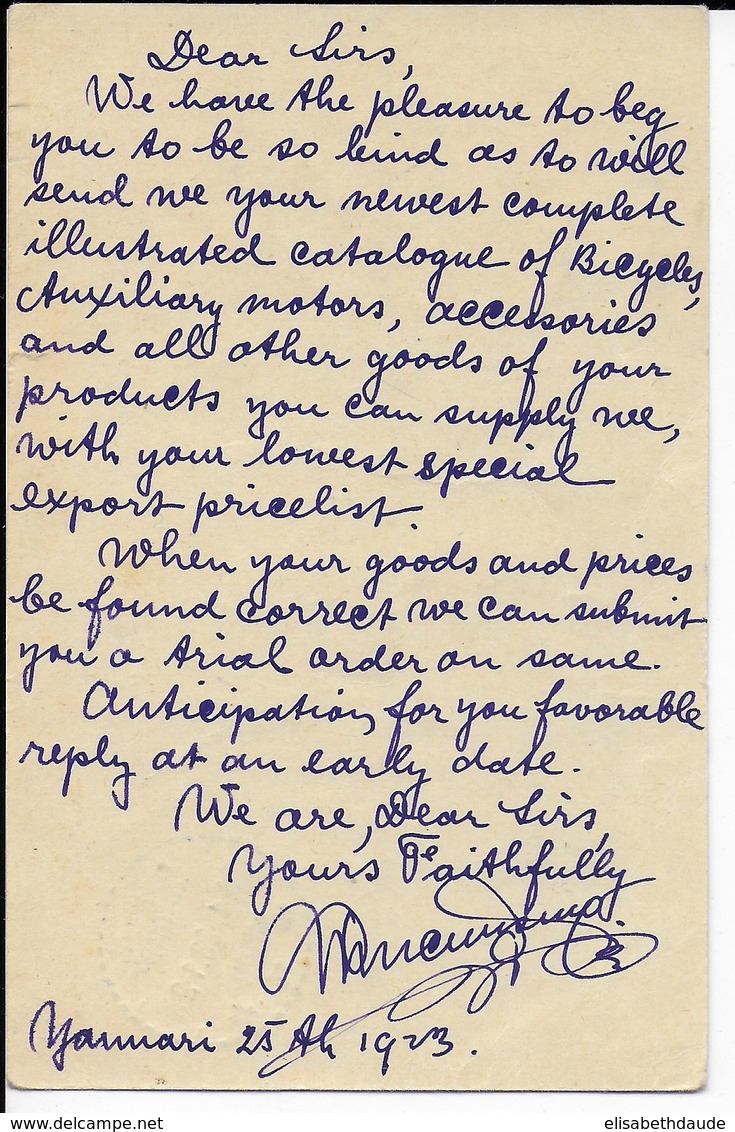 Dear Sirs,
We have the pleasure to beg
you to be so kind as to will
send we your newest complete
illustrated catalogue of Bicycles,
Auxiliary motors, accessories
and all other goods of your
products you can supply we,
with your lowest special
export pricelist.
When your goods and prices
be found correct we can submit
you a trial order on same.
Anticipation, for you favorable
reply at an early date.
We are, Dear Sirs,
Yours Faithfully
Yannuari 25th 1923.
elisabethdaude